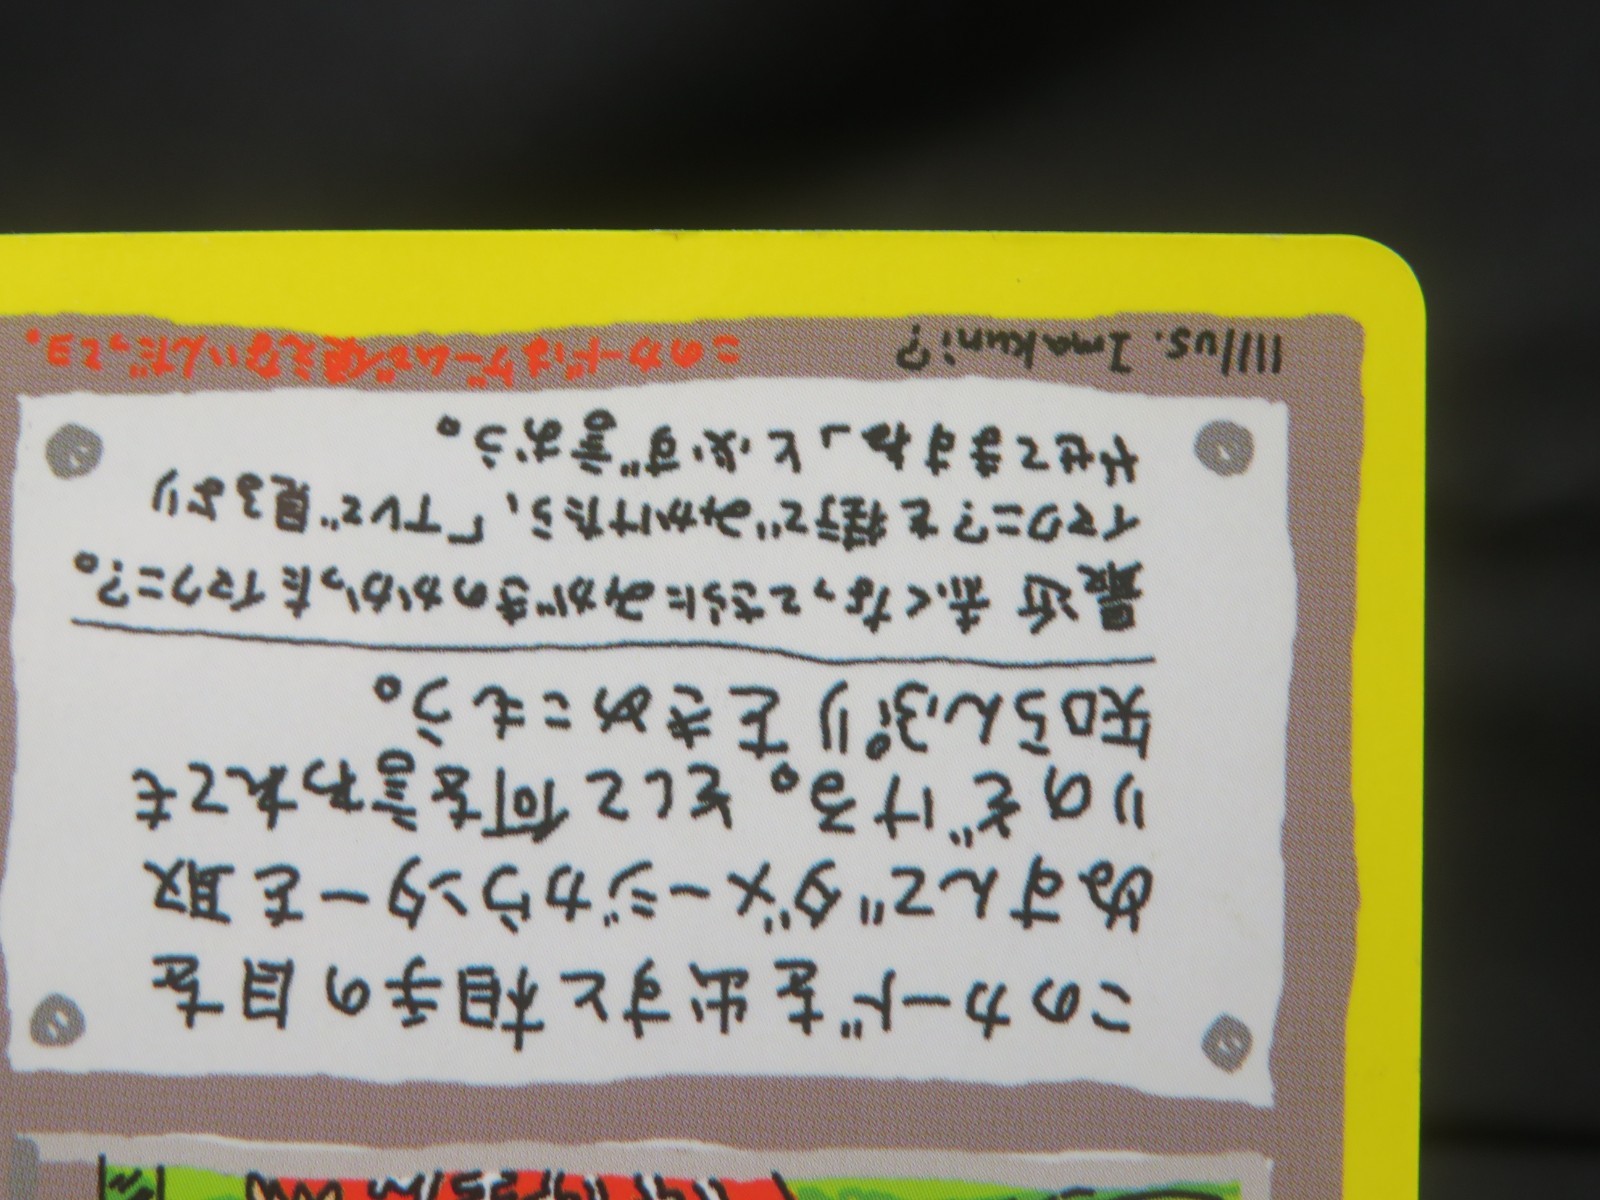 このカードを出すと相手の目を
ぬすんでダメージカウンターを取
りのぞける。そして何を言われても
知らんぷりをきめこもう。
最近赤くなってさらにみがきのかかったイマクニ?。
イマクニ?を街でみかけたら、「TVで見るより
やせてますね」と必ず言おう。
Illus. Imakuni?
このカードはゲームで使えないんだってヨ。